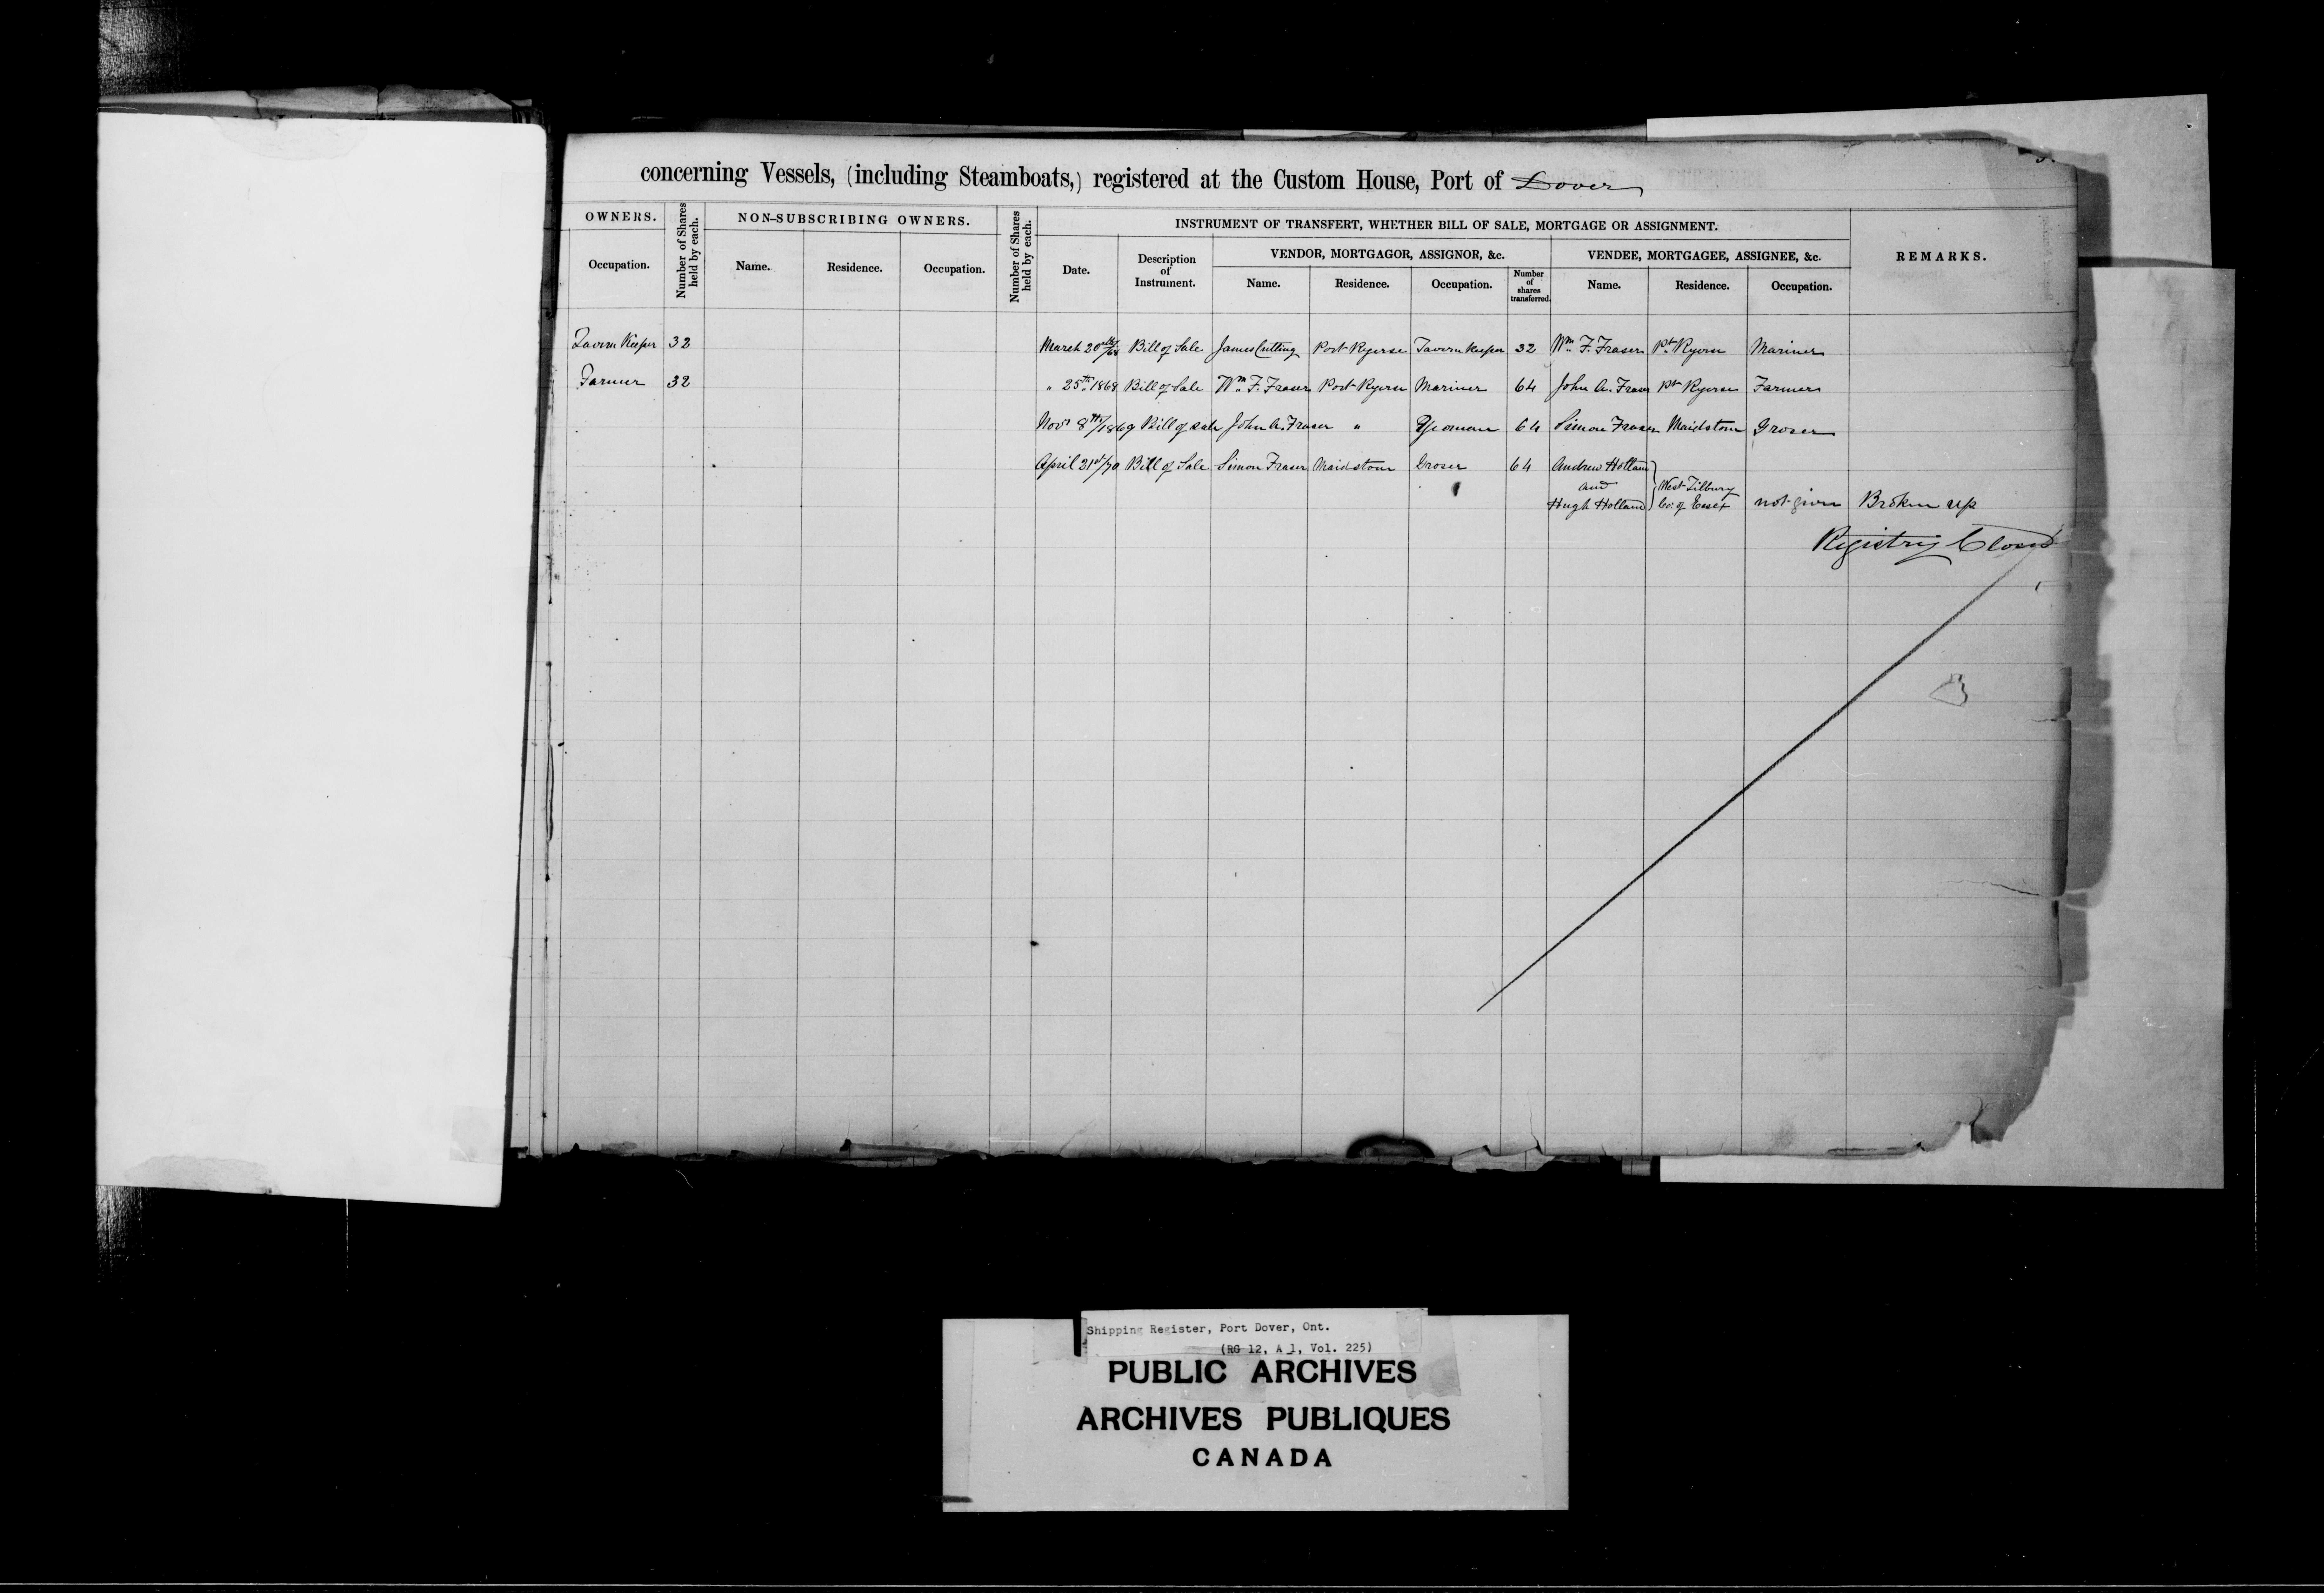 concerning Vessels, (including Steamboats,) registered at the Custom House, Port of Dover
OWNERS.
Number of Shares held by each.
NON-SUBSCRIBING OWNERS.
Number of Shares held by each.
INSTRUMENT OF TRANSFERT, WHETHER BILL OF SALE, MORTGAGE OR ASSIGNMENT.
REMARKS.
VENDOR, MORTGAGOR, ASSIGNOR, &c.
VENDEE, MORTGAGEE, ASSIGNEE, &c.
Occupation.
Name.
Residence.
Occupation.
Date.
Description of Instrument.
Name.
Residence.
Occupation.
Number of shares transferred.
Name.
Residence.
Occupation.
Tavern Keeper 32 March 20th/68 Bill of Sale James Cutting Port Ryerse Tavern Keeper 32 Wm F. Fraser Pt Ryerse Mariner
Farmer 32 " 25th 1868 Bill of Sale Wm F. Fraser Port Ryerse Mariner 64 John A. Fraser Pt Ryerse Farmer
Novr 8th/1869 Bill of Sale John A. Fraser " Yeoman 64 Simon Fraser Maidstone Groser
April 21st/70 Bill of Sale Simon Fraser Maidstone Groser 64 Andrew Holland
and West Tilbury
Hugh Holland Co: of Essex not given Broken up
Registry Closed
Shipping Register, Port Dover, Ont.
(RG 12, A 1, Vol. 225)
PUBLIC ARCHIVES
ARCHIVES PUBLIQUES
CANADA